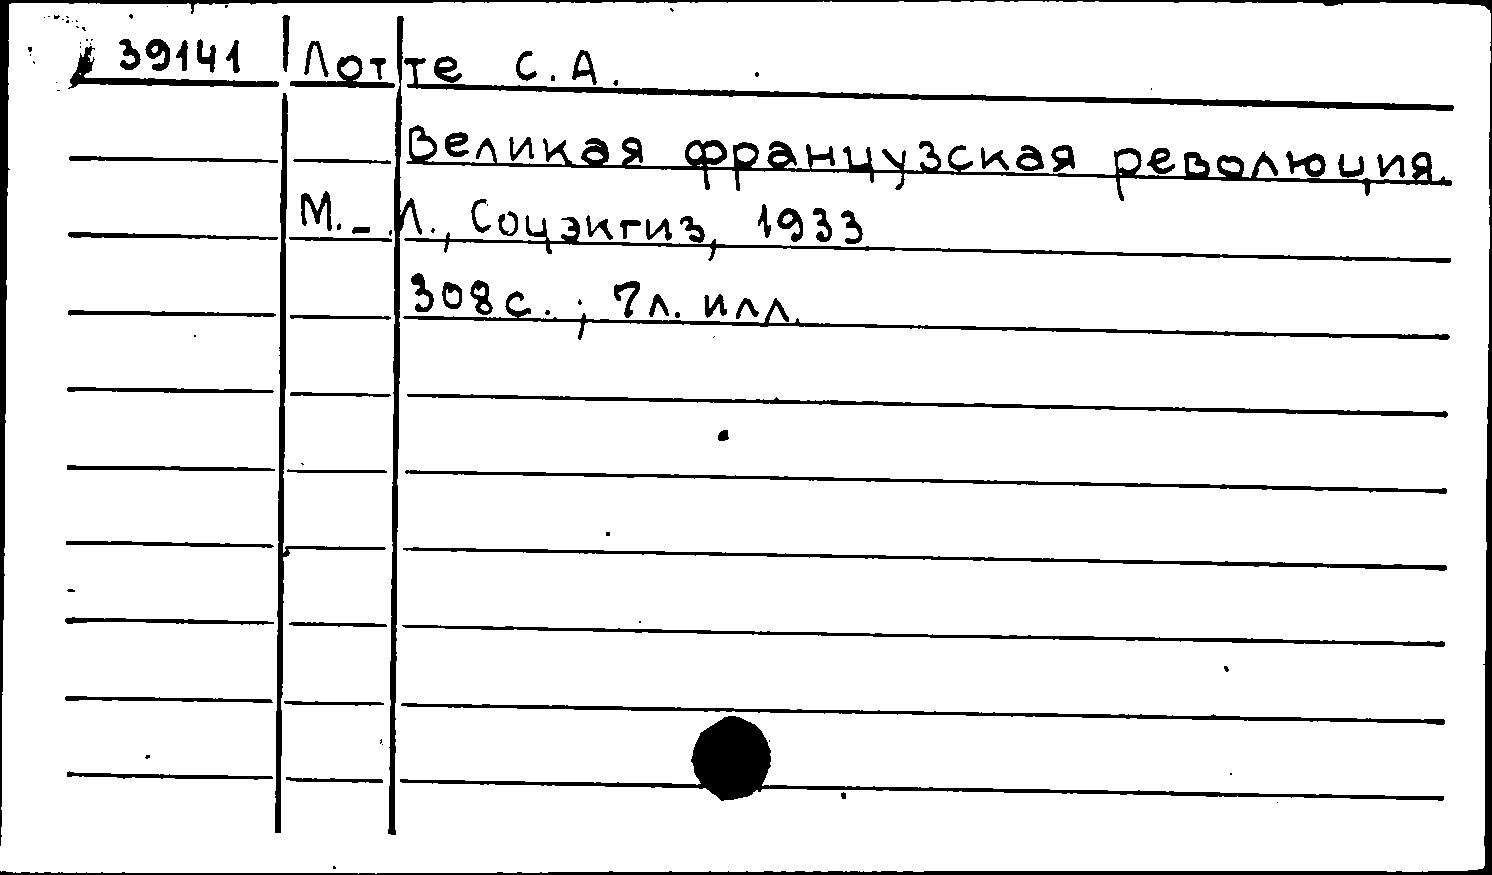 39141 Лотте С.А.
Великая французская революция.
М.-Л., Соцэкгиз, 1933
308с.; 7л. илл.